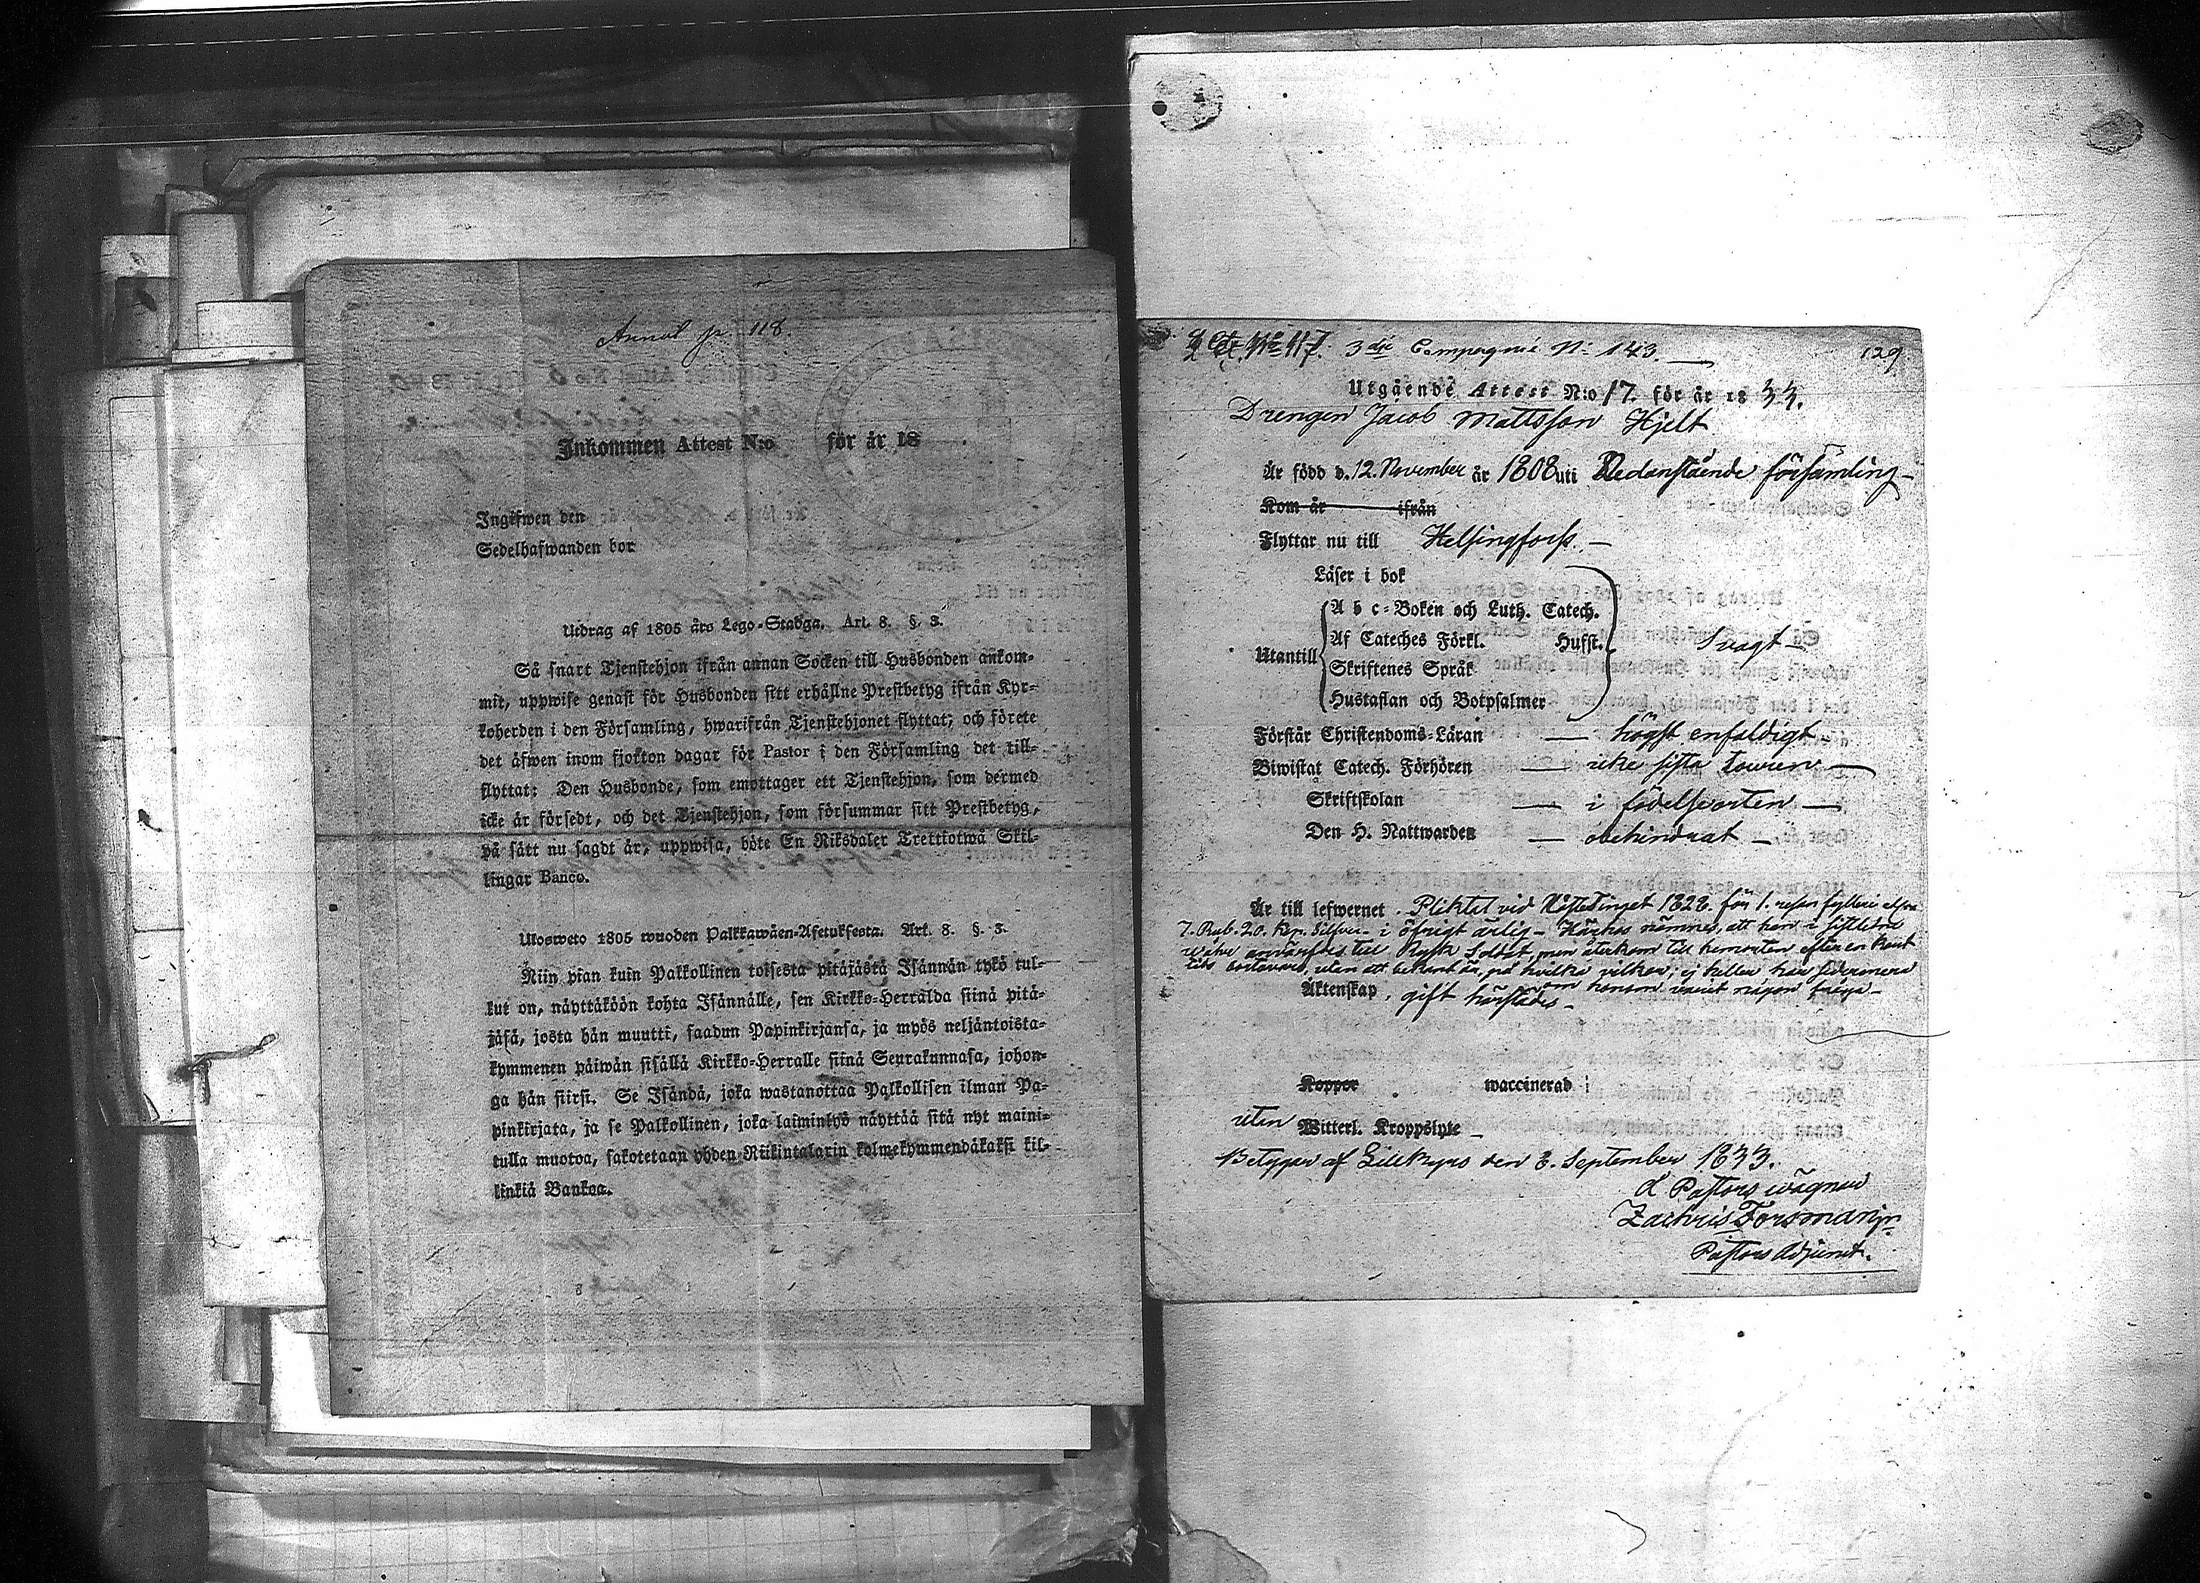 Annot p. 118.
Inkommen Attest N:o för år 18
Ingifwen den
Sedelhafwanden bor
Utdrag af 1805 års Lego-Stadga. Art. 8. §. 3.
Så snart Tjenstehjon ifrån annan Socken till Husbonden ankom-
mit, uppwise genast för Husbonden sitt erhållne Prestbetyg ifrån Kyr-
koherden i den Församling, hwarifrån Tjenstehjonet flyttat; och förete
det äfwen inom fjorton dagar för Pastor i den Församling det till-
flyttat: Den Husbonde, som emottager ett Tjenstehjon, som dermed
icke är försedt, och det Tjenstehjon, som försummar sitt Prestbetyg,
på sätt nu sagdt är, uppwisa, böte En Riksdaler Trettiotwå Skil-
lingar Banco.
Ulosweto 1805 wuoden Palkkawäen-Asetuksesta. Art. 8. §. 3.
Niin pian kuin Palkollinen toisesta pitäjästä Isännän tykö tul-
lut on, näyttäköön kohta Isännälle, sen Kirkko-Herralda siinä pitä-
jäsä, josta hän muutti, saadun Papinkirjansa, ja myös neljäntoista-
kymmenen päiwän sisällä Kirkko-Herralle siinä Seurakunnasa, johon-
ga hän siirsi. Se Isändä, joka wastanottaa Palkollisen ilman Pa-
pinkirjata, ja se Palkollinen, joka laiminlyö näyttää sitä nyt maini-
tulla muotoa, sakotetaan yhden Riikintalarin kolmekymmendäkaksi kil-
linkiä Bankoa.
3dje Compagnie N: 143.
129
Utgående Attest N:o 17. för år 1833.
Drengen Jacob Mattsson Hjelt
Är född d. 12. November år 1808 uti Nedanstående församling
Kom år ifrån
Flyttar nu till Helsingfors.
Läser i bok
A b c-Boken och Luth. Catech.
Utantill Af Cateches Förkl. Husst. Svagt
Skriftenes Språk
Hustaflan och Botpsalmer
Förstår Christendoms-Läran högst enfaldigt
Biwistat Catech. Förhören icke sista Touren
Skriftskolan i födelseorten
Den H. Nattwarden obehindrat
Är till lefwernet. Pliktat vid Höste Tinget 1828. för 1. resan fylleri
7. Rub. 20. Kop. Silfver i öfrigt ärlig - Härhos nämnes, att han i sistledne
till Rysk Soldat, men återkom till hemorten efter en kort
tids bortovaro, utan att bekant är, på hvilka vilkor; ej heller har sedermera
om honom varit någon fråga
Äktenskap, gift härstädes
Koppor waccinerad
utan Witterl. Kroppslyte
Betygar af Lillkyro den 3. September 1833.
d. Pastors wägnar
Zachris Forsman jr.
Pastors Adjunct.